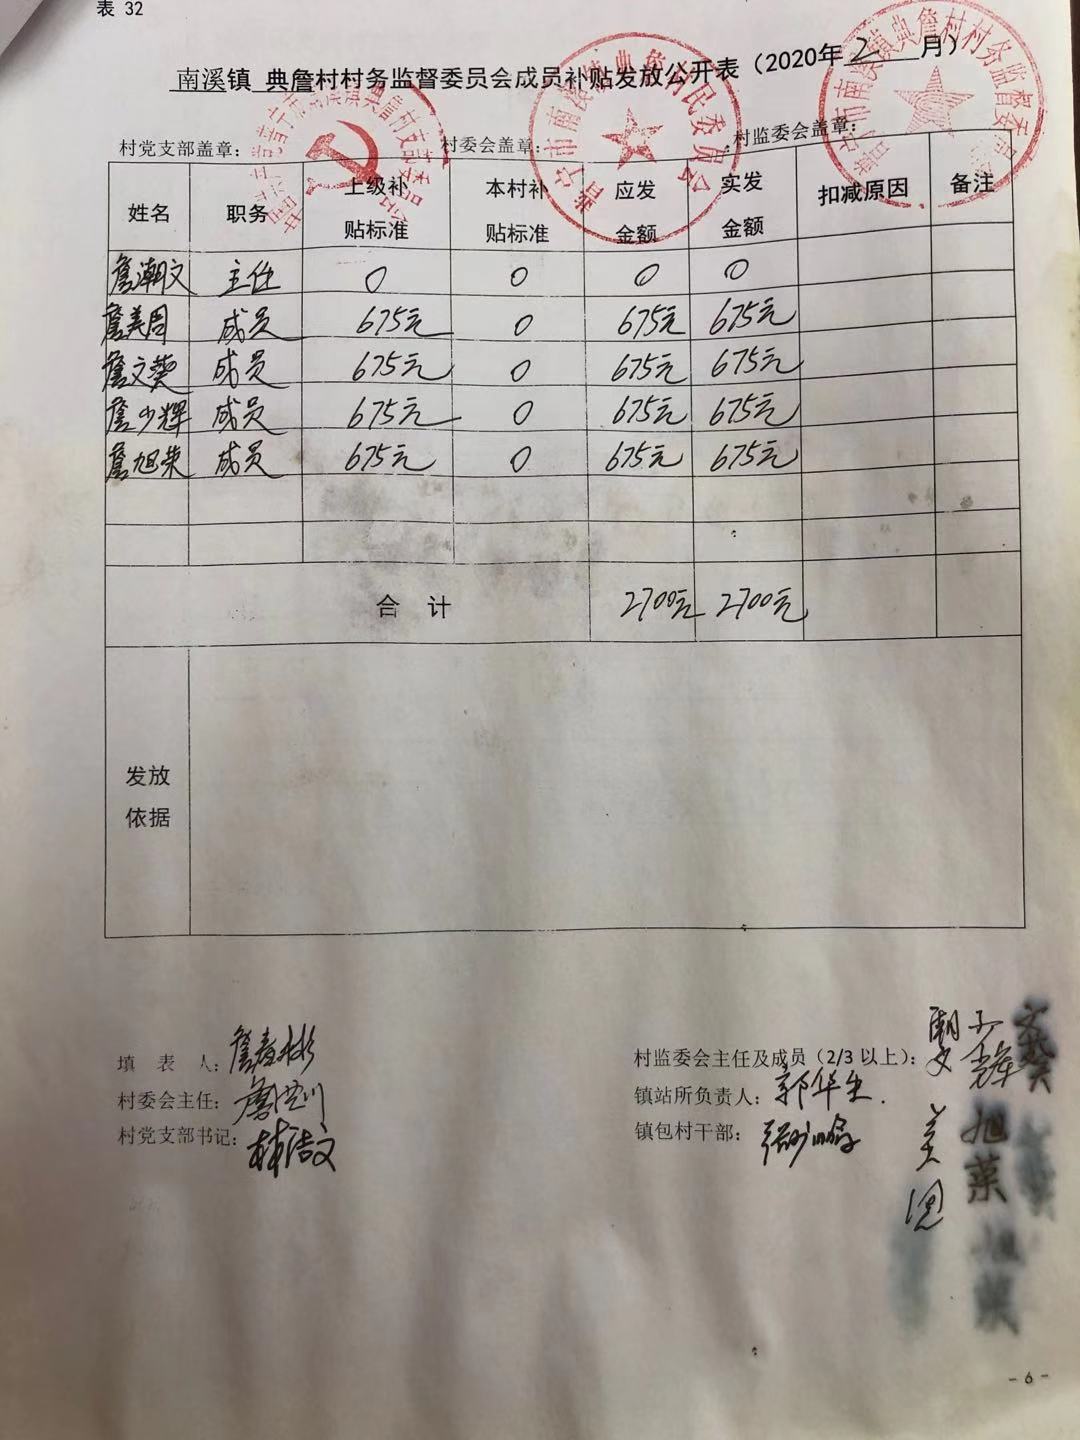 表 32
南溪镇 典詹村村务监督委员会成员补贴发放公开表（2020年2月）
村党支部盖章： 村委会盖章： 村监委会盖章：
姓名 职务 上级补贴标准 本村补贴标准 应发金额 实发金额 扣减原因 备注
詹潮文 主任 0 0 0 0
詹美周 成员 675元 0 675元 675元
詹文葵 成员 675元 0 675元 675元
詹少辉 成员 675元 0 675元 675元
詹旭荣 成员 675元 0 675元 675元
合 计 2700元 2700元
发放依据
填 表 人：詹春彬
村委会主任：
村党支部书记：林洁文
村监委会主任及成员（2/3 以上）：
镇站所负责人：郭华生
镇包村干部：
美
旭
- 6 -